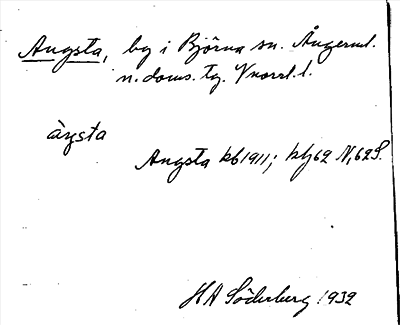 Angsta, by i Björna sn. Ångerml.
n. doms. tg. Vnorrl. l.
àŋsta
Angsta kb 1911; kbj 62 N, 62 S.
HA Söderberg 1932